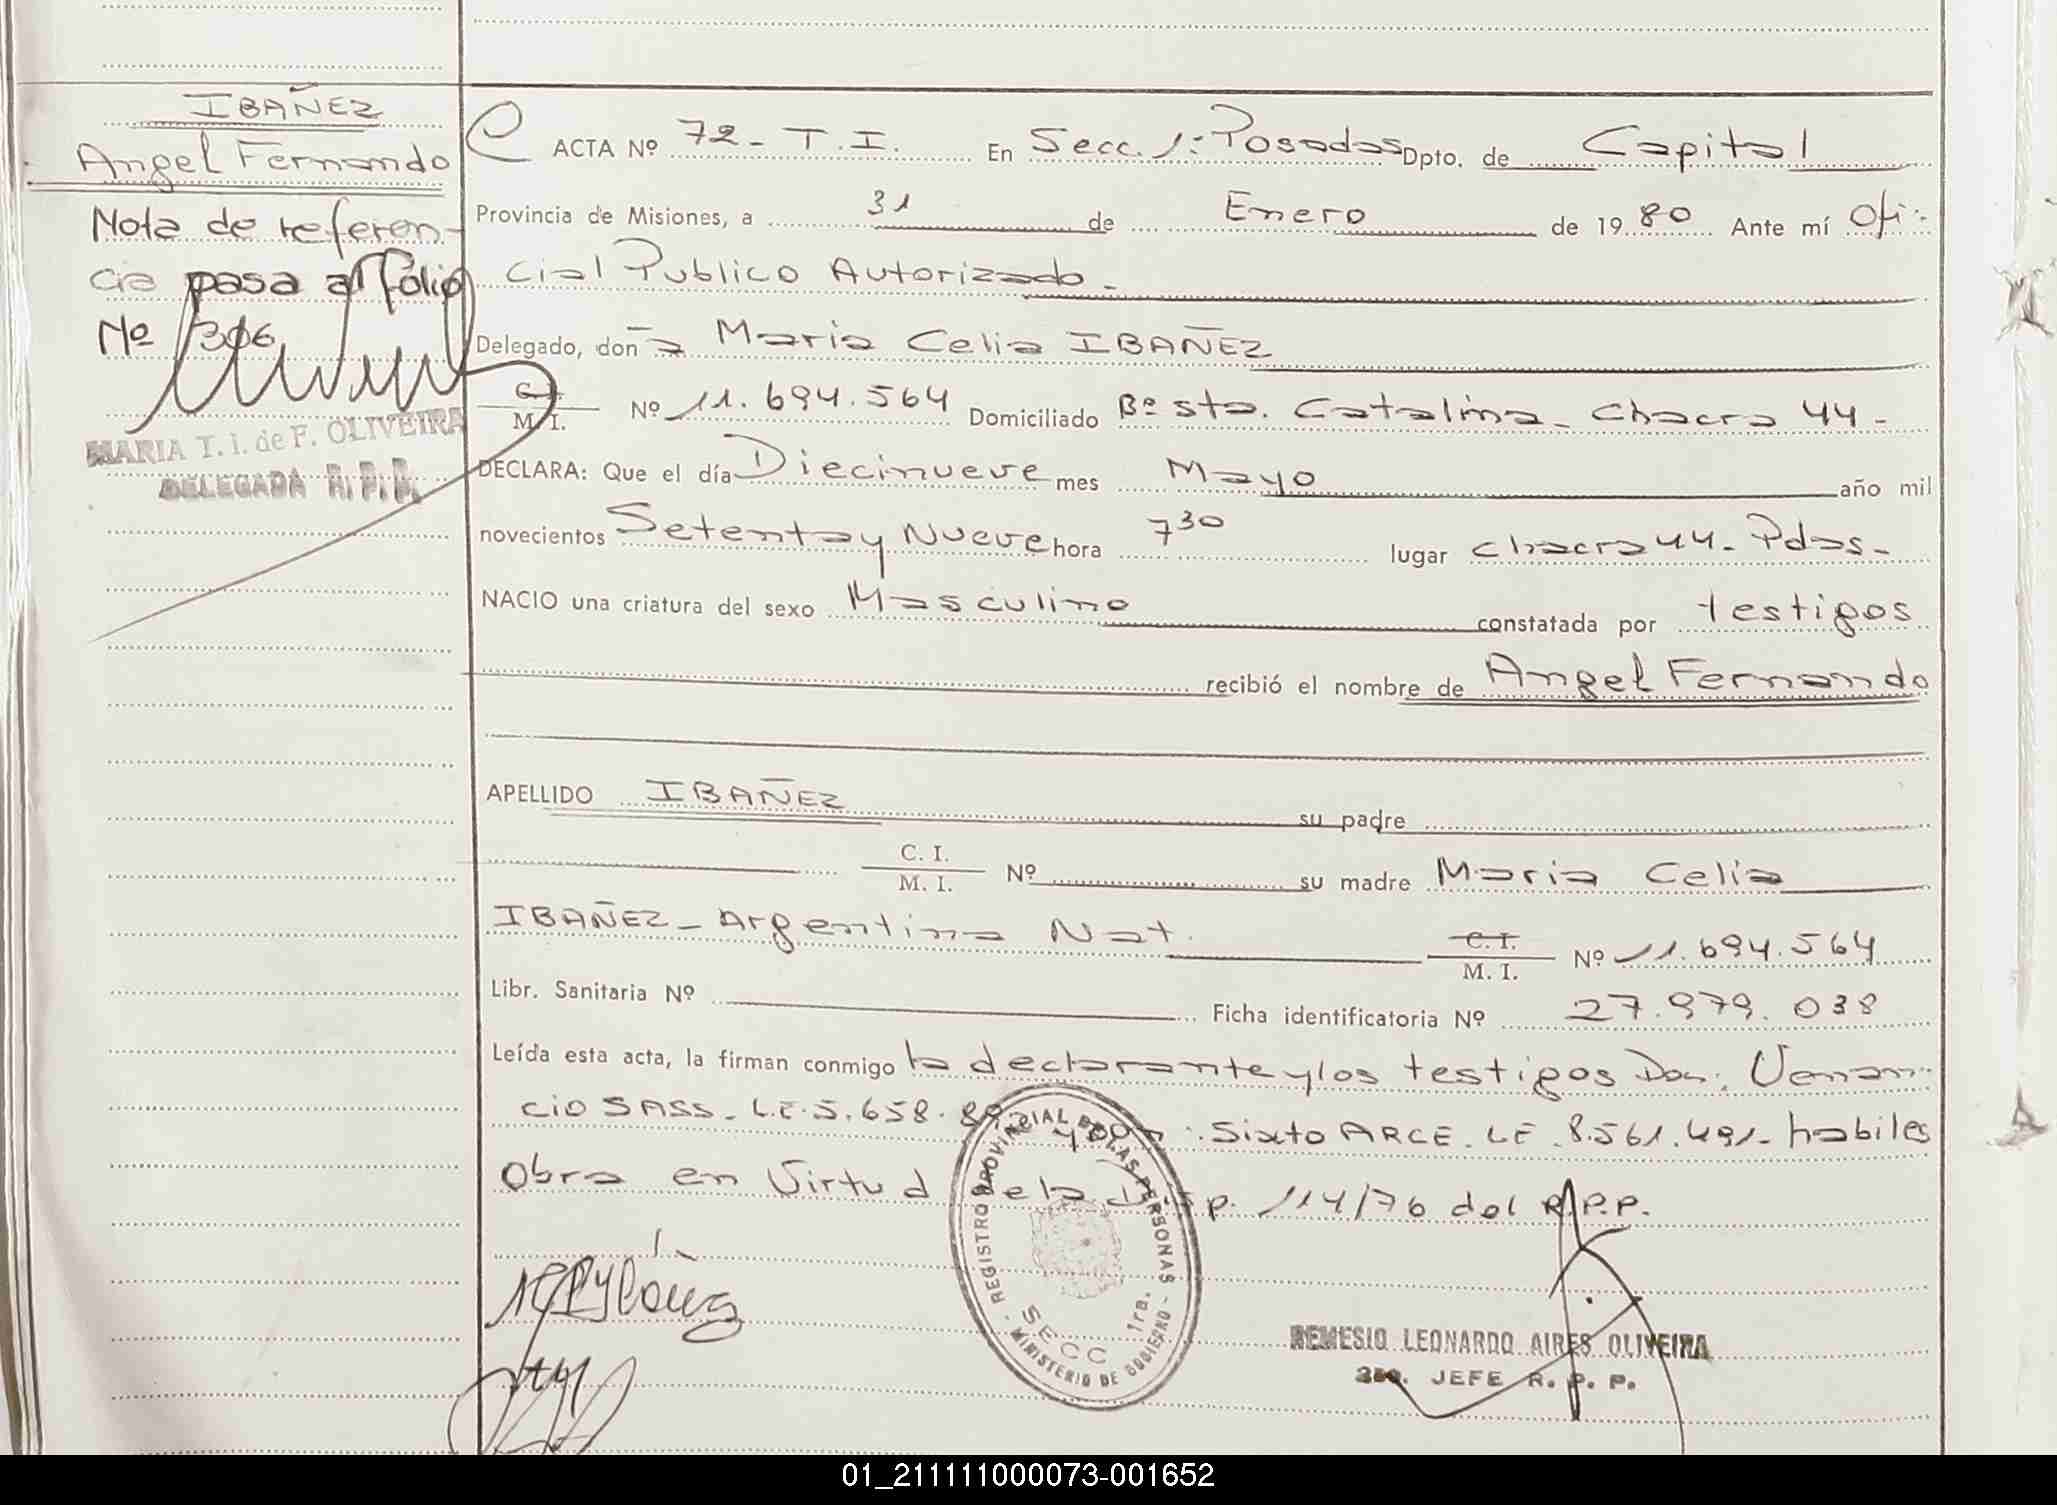 IBAÑEZ
Angel Fernando
Nota de referen-
cia pasa al fólio
Nº 306
MARIA T. I. de F. OLIVEIRA
DELEGADA R. P. P.
ACTA Nº 72 - T. I. En Secc. 1: Posadas Dpto. de Capital
Provincia de Misiones, a 31 de Enero de 1980 Ante mí Ofi-
cial Publico Autorizado.
Delegado, doña Maria Celia IBAÑEZ
C.I. / M. I. Nº 11.694.564 Domiciliado Bº Sta. Catalina - Chacra 44 -
DECLARA: Que el día Diecinueve mes Mayo año mil
novecientos Setenta y Nueve hora 7 30 lugar Chacra 44 - Pdas -
NACIO una criatura del sexo Masculino constatada por testigos
recibió el nombre de Angel Fernando
APELLIDO IBAÑEZ su padre
C. I. / M. I. Nº su madre Maria Celia
IBAÑEZ - Argentina Nat. C. I. / M. I. Nº 11.694.564
Libr. Sanitaria Nº Ficha identificatoria Nº 27.979.038
Leída esta acta, la firman conmigo la declarante y los testigos Don: Venan-
cio SASS - L.E. 5.658. Sixto ARCE - LE. 8.561.491 - habiles
Obra en Virtud de la Disp. 114/76 del R.P.P.
REGISTRO PROVINCIAL DE LAS PERSONAS
SECC 1ra.
MINISTERIO DE GOBIERNO
REMESIO LEONARDO AIRES OLIVEIRA
JEFE R. P. P.
01_211111000073-001652